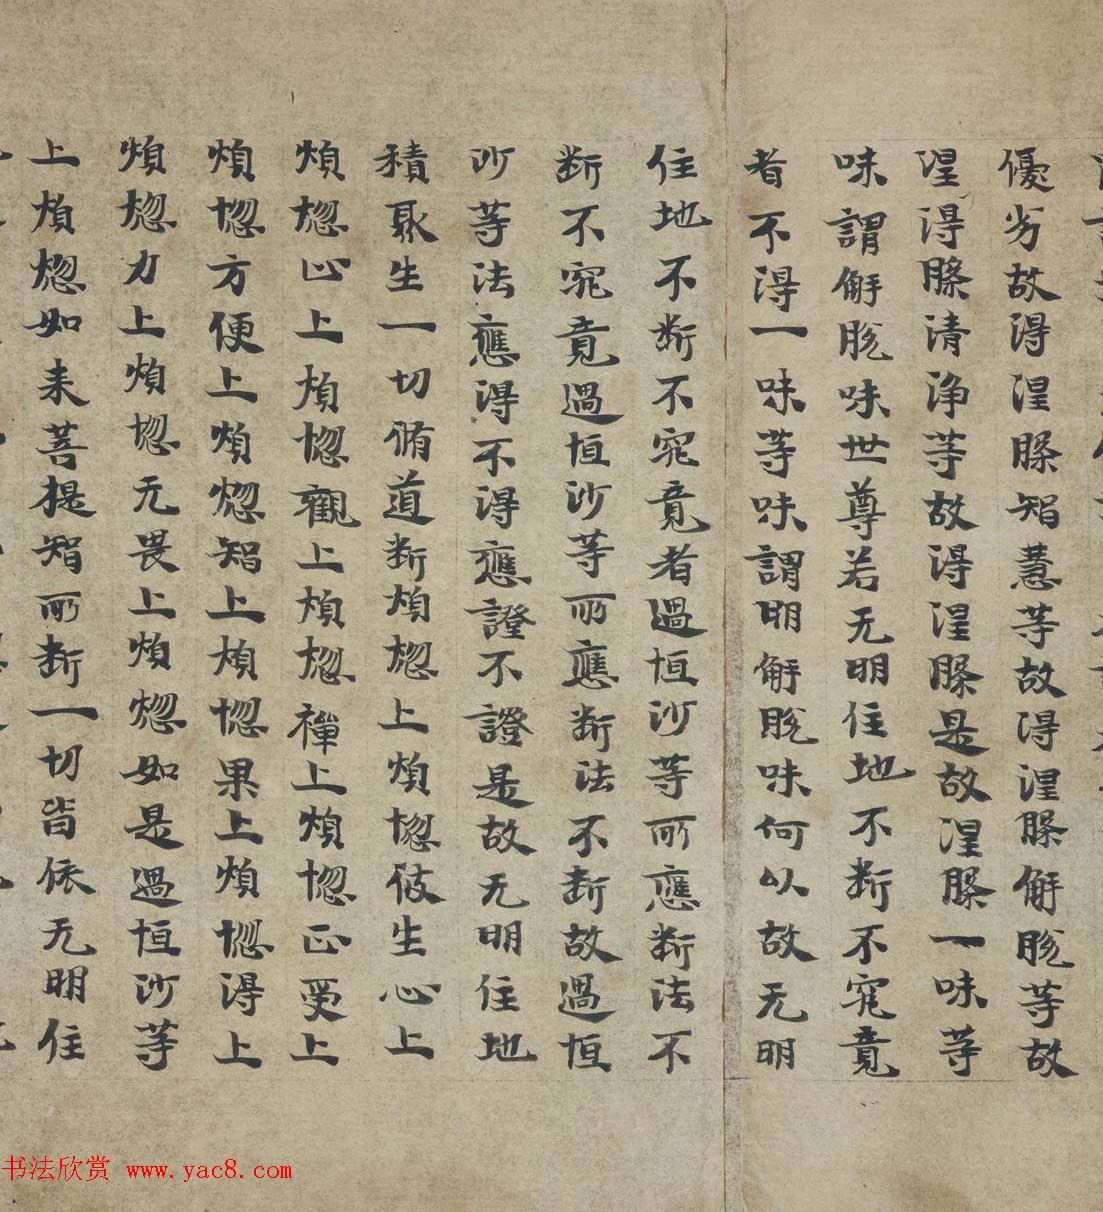 優劣故得涅槃智慧等故得涅槃解脫等故
涅得槃清淨等故得涅槃是故涅槃一味等
味謂解脫味世尊若无明住地不断不究竟
者不得一味等味謂明解脫味何以故无明
住地不断不究竟者過恒沙等所應断法不
断不究竟過恒沙等所應断法不断故過恒
沙等法應得不得應證不證是故无明住地
積聚生一切脩道断煩惱上煩惱彼生心上
煩惱止上煩惱觀上煩惱禪上煩惱正受上
煩惱方便上煩惱智上煩惱果上煩惱得上
煩惱力上煩惱无畏上煩惱如是過恒沙等
上煩惱如来菩提智所断一切皆依无明住
书法欣赏 www.yac8.com